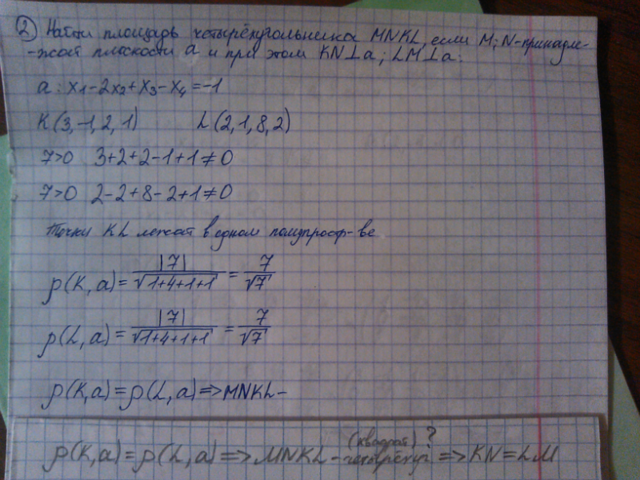 ② Найти площадь четырёхугольника MNKL, если M; N-принадле-
-жат плоскости a и при этом KN⊥a; LM⊥a.
a: x₁-2x₂+x₃-x₄=-1
K(3,-1,2,1) L(2,1,8,2)
7>0 3+2+2-1+1≠0
7>0 2-2+8-2+1≠0
Точки KL лежат в одном полупростр-ве
ρ(K,a)=|7|/√1+4+1+1=7/√7
ρ(L,a)=|7|/√1+4+1+1=7/√7
ρ(K,a)=ρ(L,a)=>MNKL-
(квадрат) ?
ρ(K,a)=ρ(L,a)=>MNKL-четырёхуг=>KN=LM